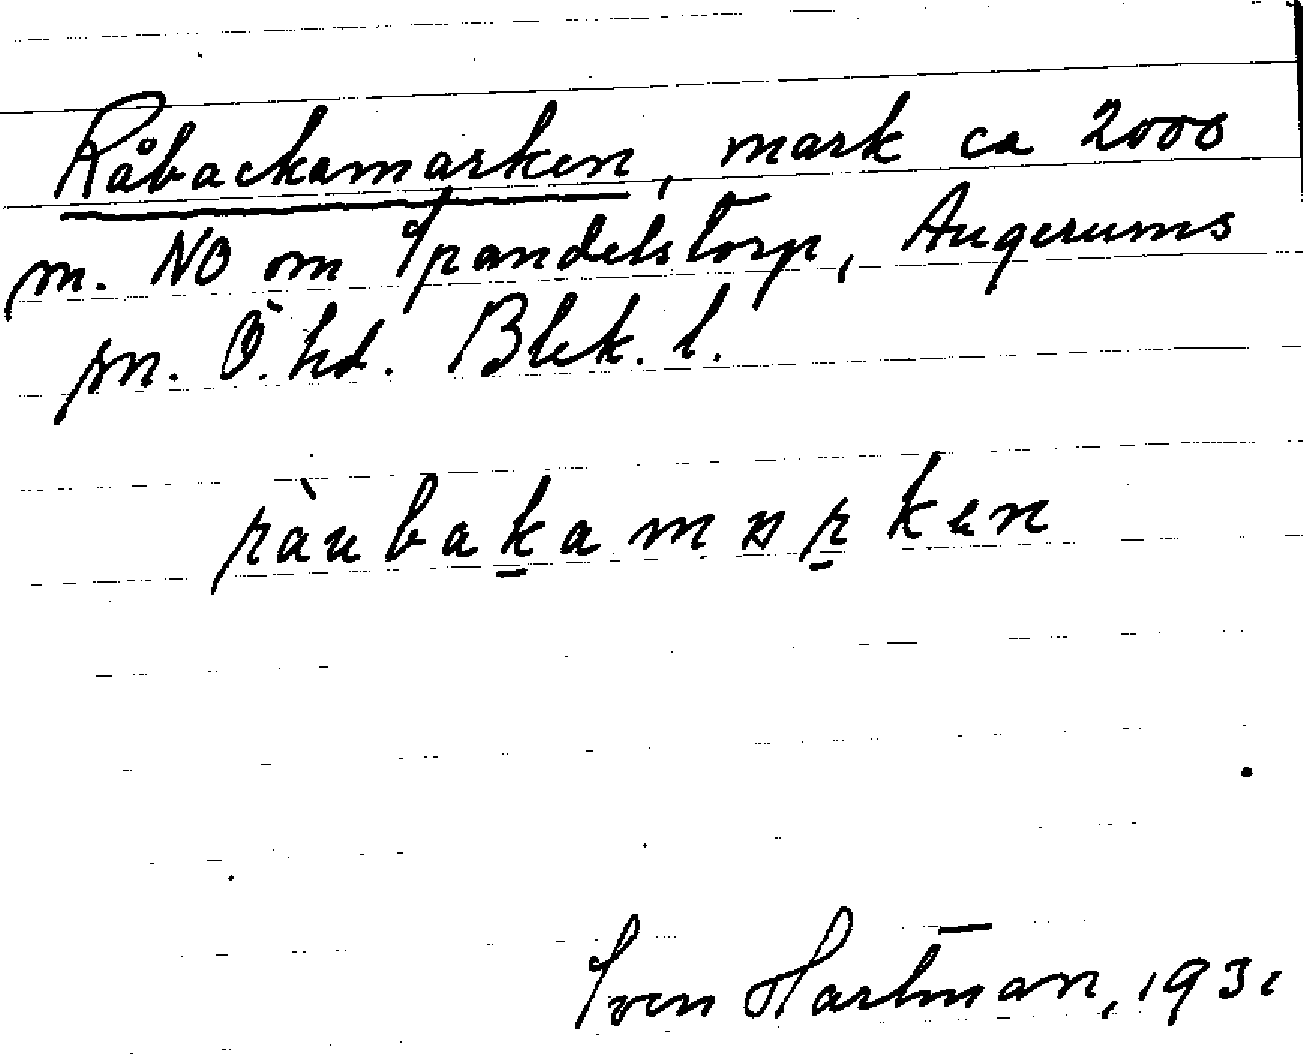 Råbackamarken, mark ca 2000
m. NO om Spandelstorp, Augerums
sn. Ö. hd. Blek. l.
ràubakamɒrken
Sven Hartman, 1931